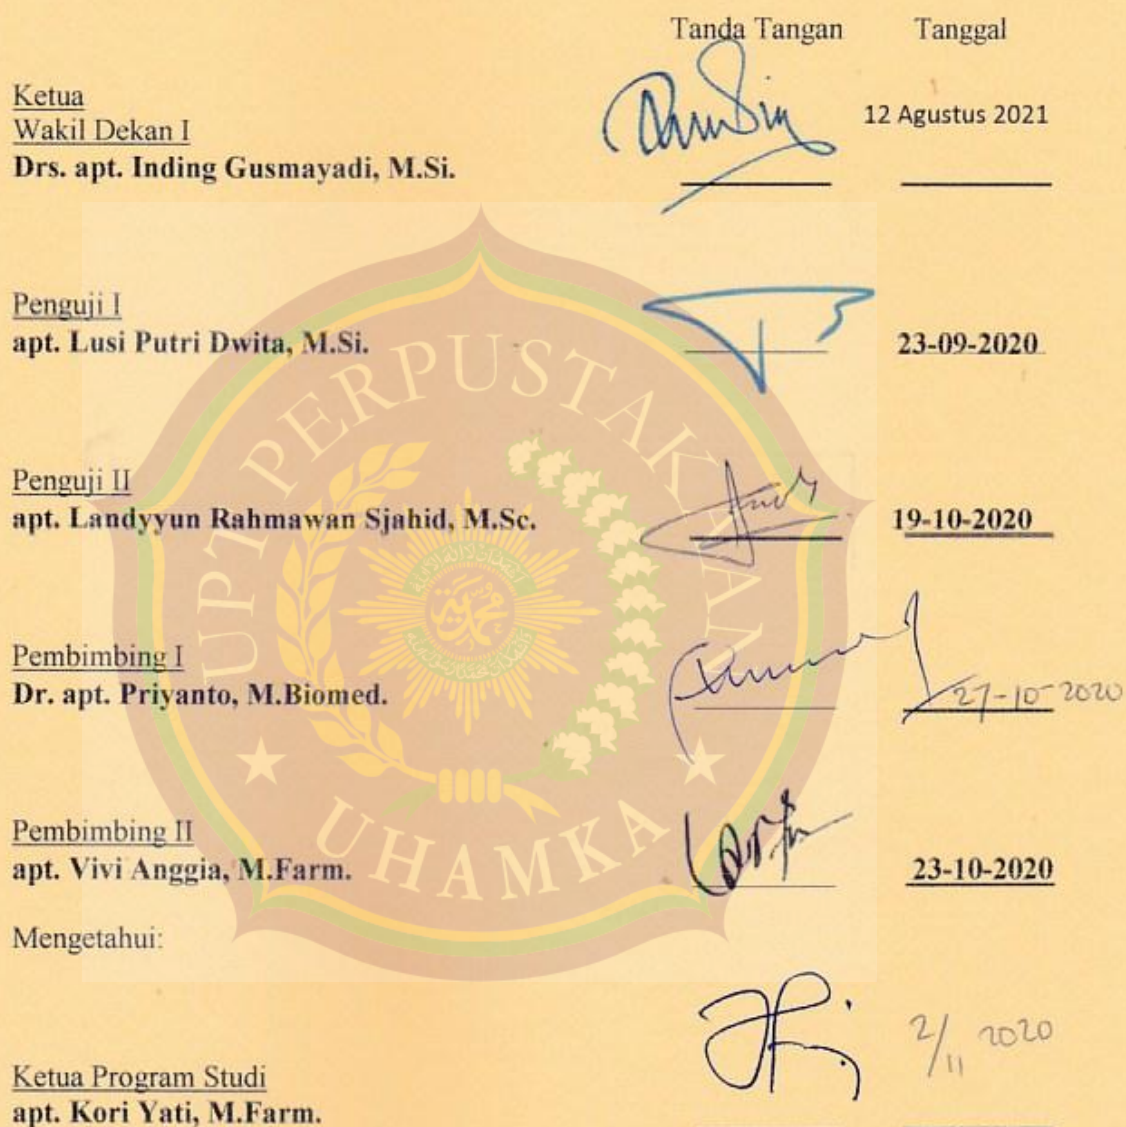 Tanda Tangan Tanggal
Ketua
Wakil Dekan I
12 Agustus 2021
Drs. apt. Inding Gusmayadi, M.Si.
Penguji I
apt. Lusi Putri Dwita, M.Si.
23-09-2020
Penguji II
apt. Landyyun Rahmawan Sjahid, M.Sc.
19-10-2020
Pembimbing I
Dr. apt. Priyanto, M.Biomed.
27-10-2020
Pembimbing II
apt. Vivi Anggia, M.Farm.
23-10-2020
Mengetahui:
2/11 2020
Ketua Program Studi
apt. Kori Yati, M.Farm.
UPT PERPUSTAKAAN
UHAMKA